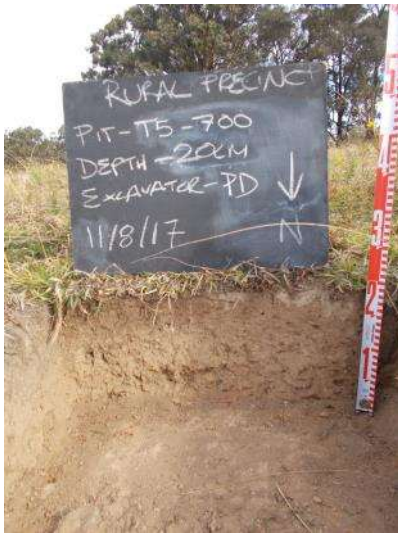 RURAL PRECINCT
PIT-T5-700
DEPTH-20CM
EXCAVATOR-PD
11/8/17
N
5
4
3
2
1